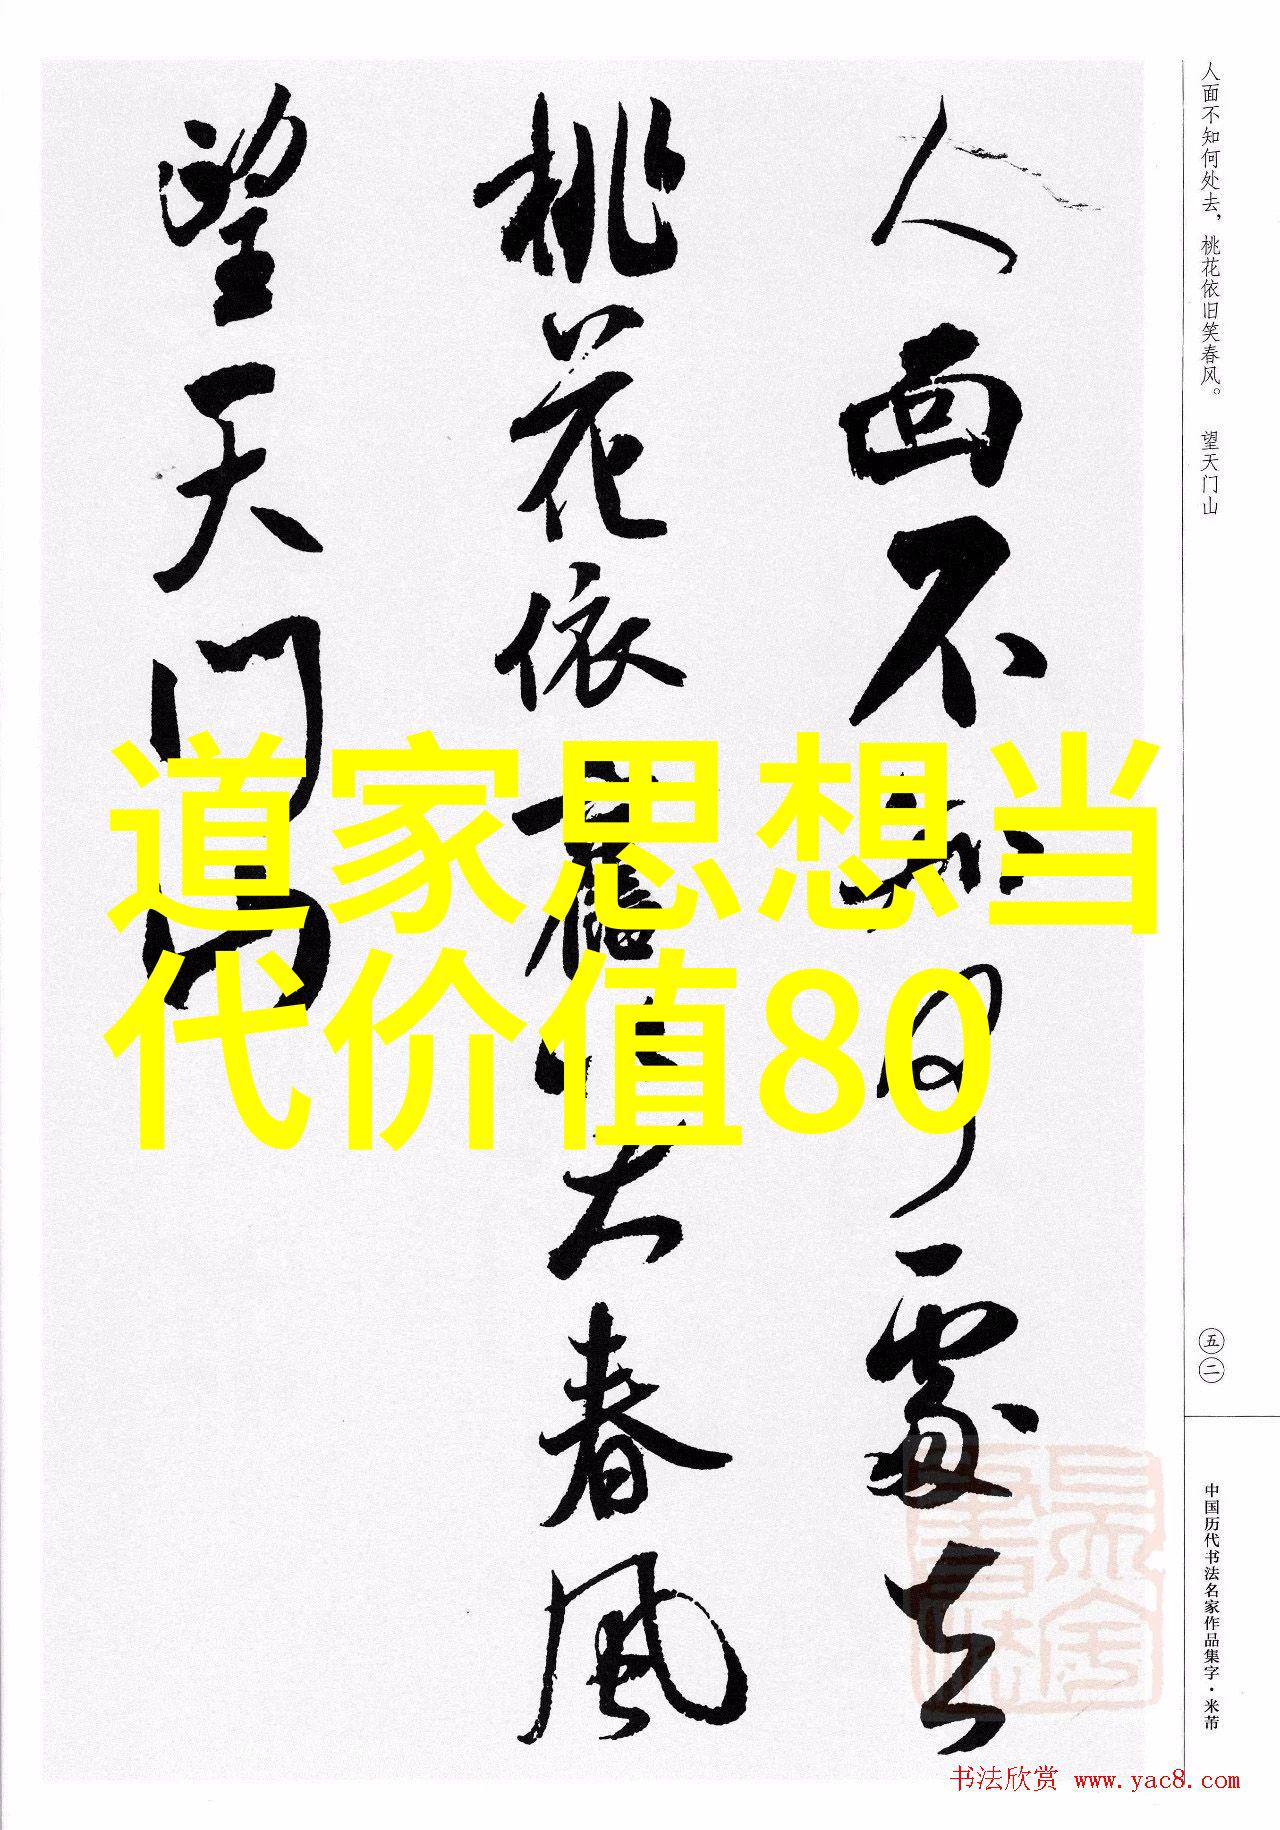 人面不知何處去
桃花依舊笑春風
望天门山
道家思想当
代价值80
人面不知何处去，桃花依旧笑春风。 望天门山
五二
中国历代书法名家作品集字·米芾
书法欣赏 www.yac8.com